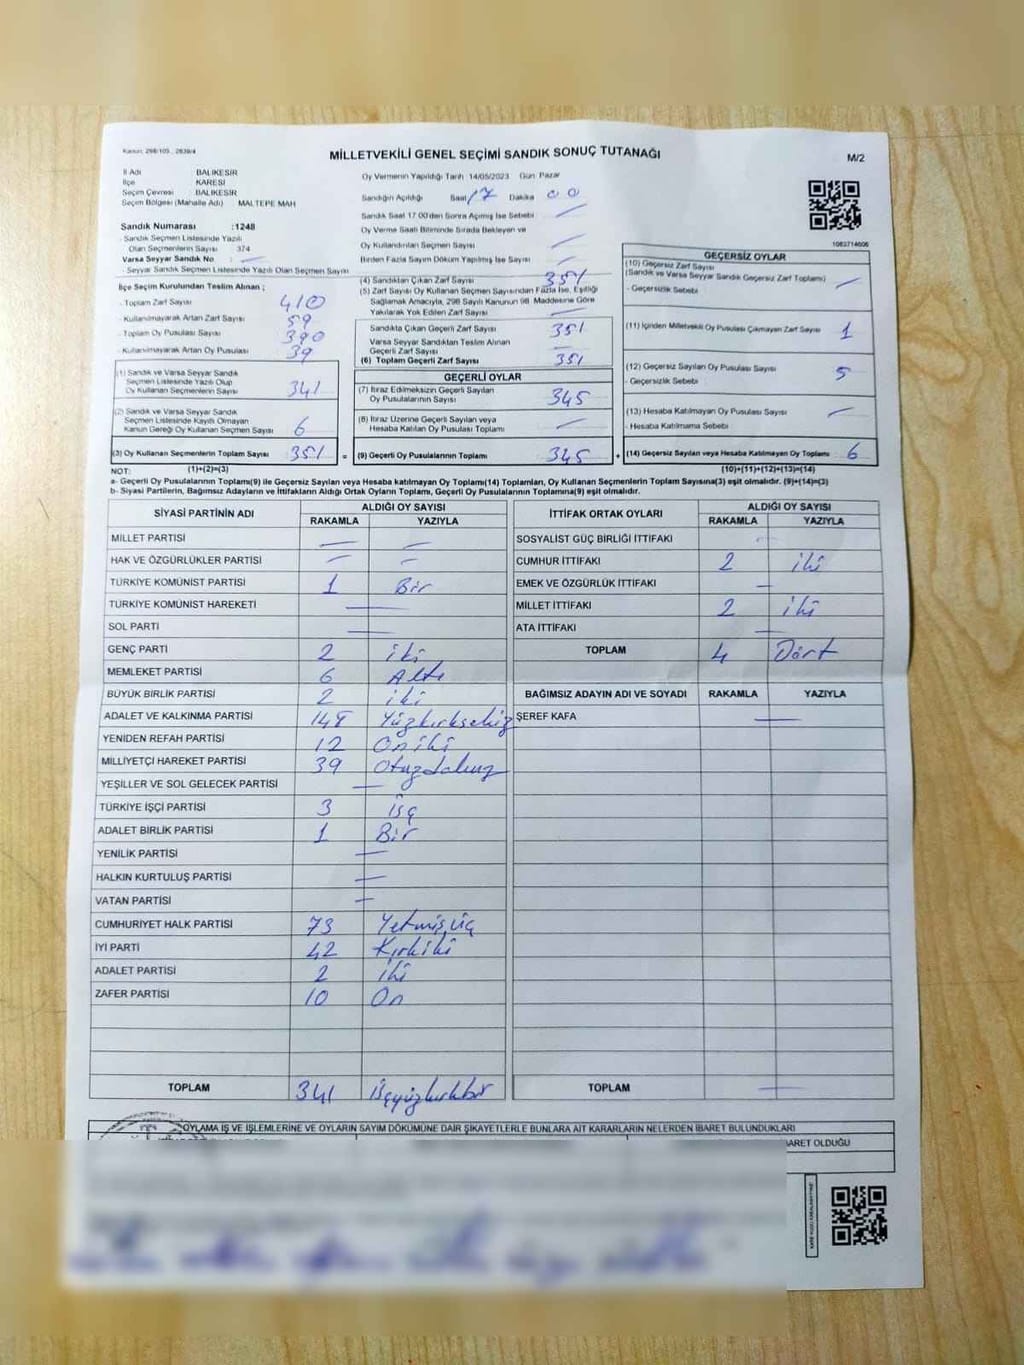 Kanun: 298/105 , 2839/4
MİLLETVEKİLİ GENEL SEÇİMİ SANDIK SONUÇ TUTANAĞI
M/2
İl Adı BALIKESİR
İlçe KARESİ
Seçim Çevresi BALIKESİR
Seçim Bölgesi (Mahalle Adı) MALTEPE MAH
Sandık Numarası :1248
- Sandık Seçmen Listesinde Yazılı
Olan Seçmenlerin Sayısı 374
Varsa Seyyar Sandık No : —
- Seyyar Sandık Seçmen Listesinde Yazılı Olan Seçmen Sayısı
İlçe Seçim Kurulundan Teslim Alınan ;
- Toplam Zarf Sayısı 410
- Kullanılmayarak Artan Zarf Sayısı 59
- Toplam Oy Pusulası Sayısı 390
- Kullanılmayarak Artan Oy Pusulası 39
(1) Sandık ve Varsa Seyyar Sandık
Seçmen Listesinde Yazılı Olup
Oy Kullanan Seçmenlerin Sayısı 341
(2) Sandık ve Varsa Seyyar Sandık
Seçmen Listesinde Kayıtlı Olmayan
Kanun Gereği Oy Kullanan Seçmen Sayısı 6
(3) Oy Kullanan Seçmenlerin Toplam Sayısı 351 =
Oy Vermenin Yapıldığı Tarih 14/05/2023 Gün Pazar
Sandığın Açıldığı Saat 17 Dakika 00
Sandık Saat 17.00'den Sonra Açılmış İse Sebebi —
Oy Verme Saati Bitiminde Sırada Bekleyen ve
Oy Kullandırılan Seçmen Sayısı —
Birden Fazla Sayım Döküm Yapılmış İse Sayısı —
(4) Sandıktan Çıkan Zarf Sayısı 351
(5) Zarf Sayısı Oy Kullanan Seçmen Sayısından Fazla İse, Eşitliği
Sağlamak Amacıyla, 298 Sayılı Kanunun 98. Maddesine Göre
Yakılarak Yok Edilen Zarf Sayısı —
Sandıkta Çıkan Geçerli Zarf Sayısı 351
Varsa Seyyar Sandıktan Teslim Alınan
Geçerli Zarf Sayısı —
(6) Toplam Geçerli Zarf Sayısı 351
GEÇERLİ OYLAR
(7) İtiraz Edilmeksizin Geçerli Sayılan
Oy Pusulalarının Sayısı 345
(8) İtiraz Üzerine Geçerli Sayılan veya
Hesaba Katılan Oy Pusulası Toplamı —
(9) Geçerli Oy Pusulalarının Toplamı 345 +
1083714606
GEÇERSİZ OYLAR
(10) Geçersiz Zarf Sayısı
(Sandık ve Varsa Seyyar Sandık Geçersiz Zarf Toplamı)
- Geçersizlik Sebebi —
(11) İçinden Milletvekili Oy Pusulası Çıkmayan Zarf Sayısı 1
(12) Geçersiz Sayılan Oy Pusulası Sayısı 5
- Geçersizlik Sebebi
(13) Hesaba Katılmayan Oy Pusulası Sayısı —
- Hesaba Katılmama Sebebi
(14) Geçersiz Sayılan veya Hesaba Katılmayan Oy Toplamı 6
NOT: (1)+(2)=(3) (10)+(11)+(12)+(13)=(14)
a- Geçerli Oy Pusulalarının Toplamı(9) ile Geçersiz Sayılan veya Hesaba katılmayan Oy Toplamı(14) Toplamları, Oy Kullanan Seçmenlerin Toplam Sayısına(3) eşit olmalıdır. (9)+(14)=(3)
b- Siyasi Partilerin, Bağımsız Adayların ve İttifakların Aldığı Ortak Oyların Toplamı, Geçerli Oy Pusulalarının Toplamına(9) eşit olmalıdır.
SİYASİ PARTİNİN ADI ALDIĞI OY SAYISI
RAKAMLA YAZIYLA
MİLLET PARTİSİ — —
HAK VE ÖZGÜRLÜKLER PARTİSİ — —
TÜRKİYE KOMÜNİST PARTİSİ 1 Bir
TÜRKİYE KOMÜNİST HAREKETİ —
SOL PARTİ —
GENÇ PARTİ 2 iki
MEMLEKET PARTİSİ 6 Altı
BÜYÜK BİRLİK PARTİSİ 2 iki
ADALET VE KALKINMA PARTİSİ 148 Yüzkırksekiz
YENİDEN REFAH PARTİSİ 12 Oniki
MİLLİYETÇİ HAREKET PARTİSİ 39 Otuzdokuz
YEŞİLLER VE SOL GELECEK PARTİSİ —
TÜRKİYE İŞÇİ PARTİSİ 3 üç
ADALET BİRLİK PARTİSİ 1 Bir
YENİLİK PARTİSİ —
HALKIN KURTULUŞ PARTİSİ —
VATAN PARTİSİ —
CUMHURİYET HALK PARTİSİ 73 Yetmişüç
İYİ PARTİ 42 Kırkiki
ADALET PARTİSİ 2 iki
ZAFER PARTİSİ 10 On
TOPLAM 341 üçyüzkırkbir
İTTİFAK ORTAK OYLARI ALDIĞI OY SAYISI
RAKAMLA YAZIYLA
SOSYALİST GÜÇ BİRLİĞİ İTTİFAKI —
CUMHUR İTTİFAKI 2 iki
EMEK VE ÖZGÜRLÜK İTTİFAKI —
MİLLET İTTİFAKI 2 iki
ATA İTTİFAKI —
TOPLAM 4 Dört
BAĞIMSIZ ADAYIN ADI VE SOYADI RAKAMLA YAZIYLA
ŞEREF KAFA —
TOPLAM —
OYLAMA İŞ VE İŞLEMLERİNE VE OYLARIN SAYIM DÖKÜMÜNE DAİR ŞİKAYETLERLE BUNLARA AİT KARARLARIN NELERDEN İBARET BULUNDUKLARI
BARET OLDUĞU